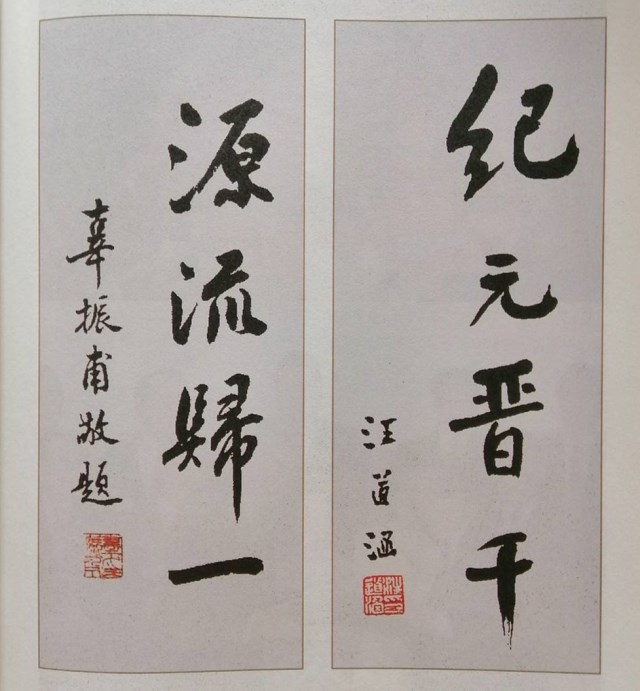 纪元晋千
汪道涵
源流歸一
辜振甫敬題